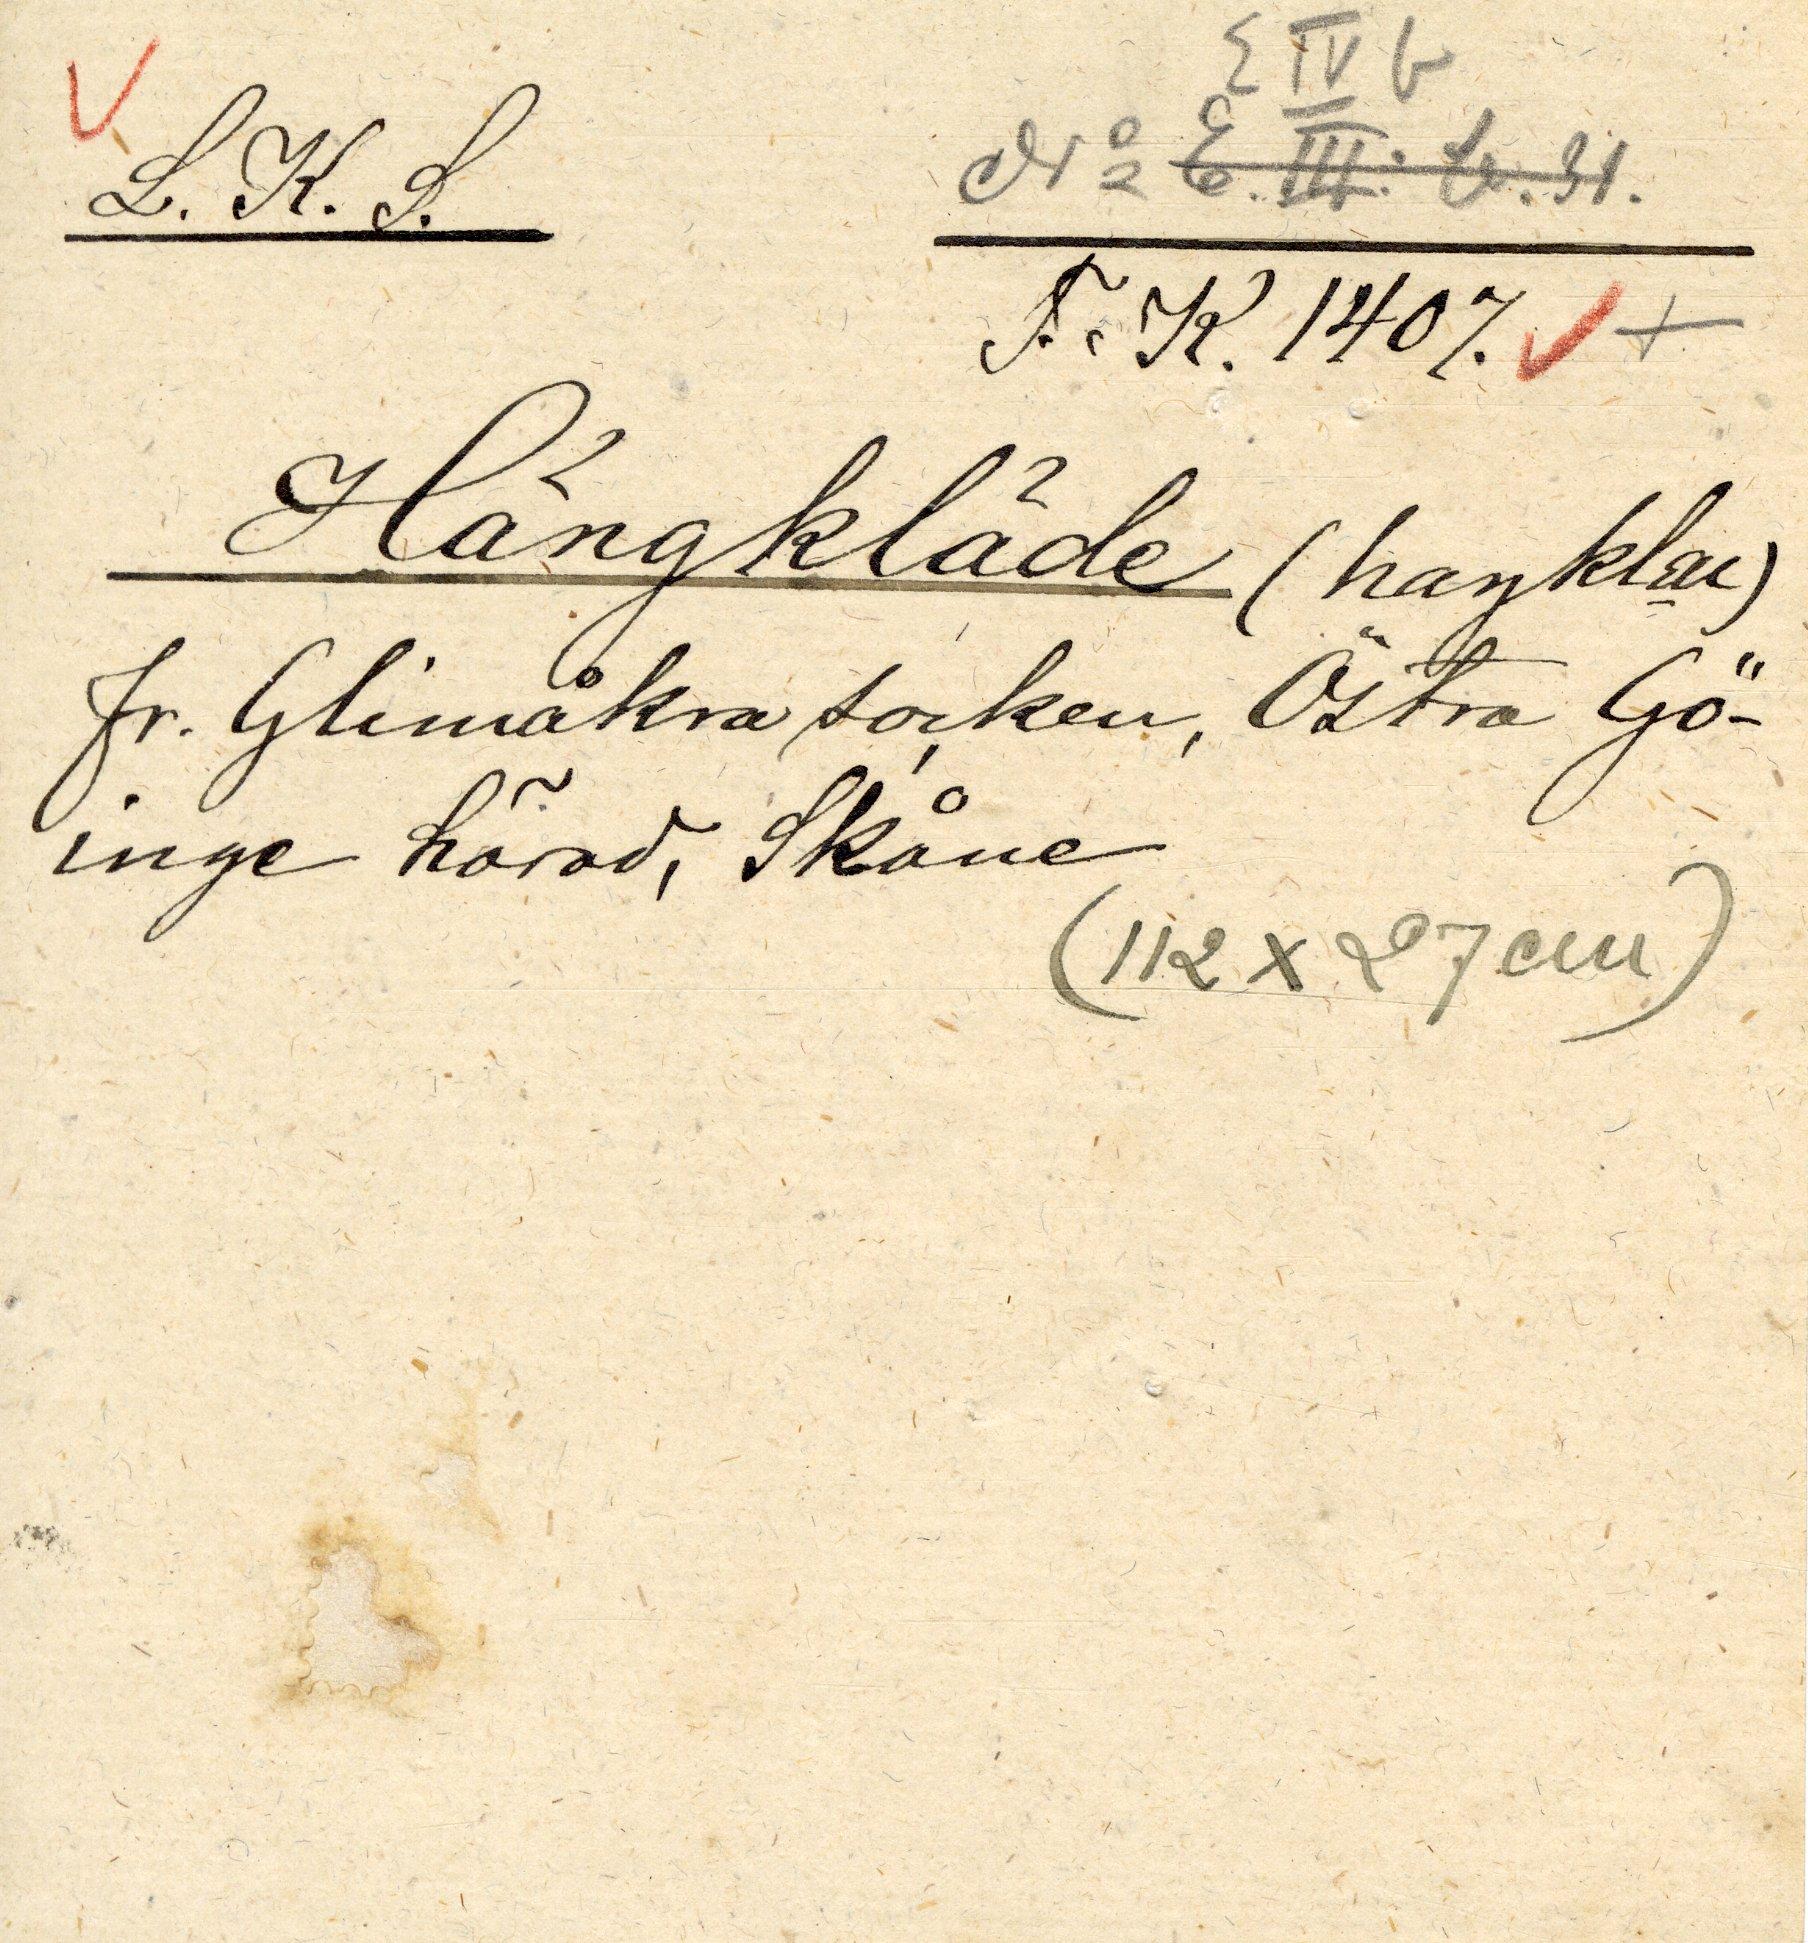 E IV b
L. K. S.
No E. III. b. 31.
F. K. 1407. +
Hängkläde (hanklæ)
fr. Glimåkra socken, Östra Gö-
inge härad, Skåne
(112 x 27 cm)